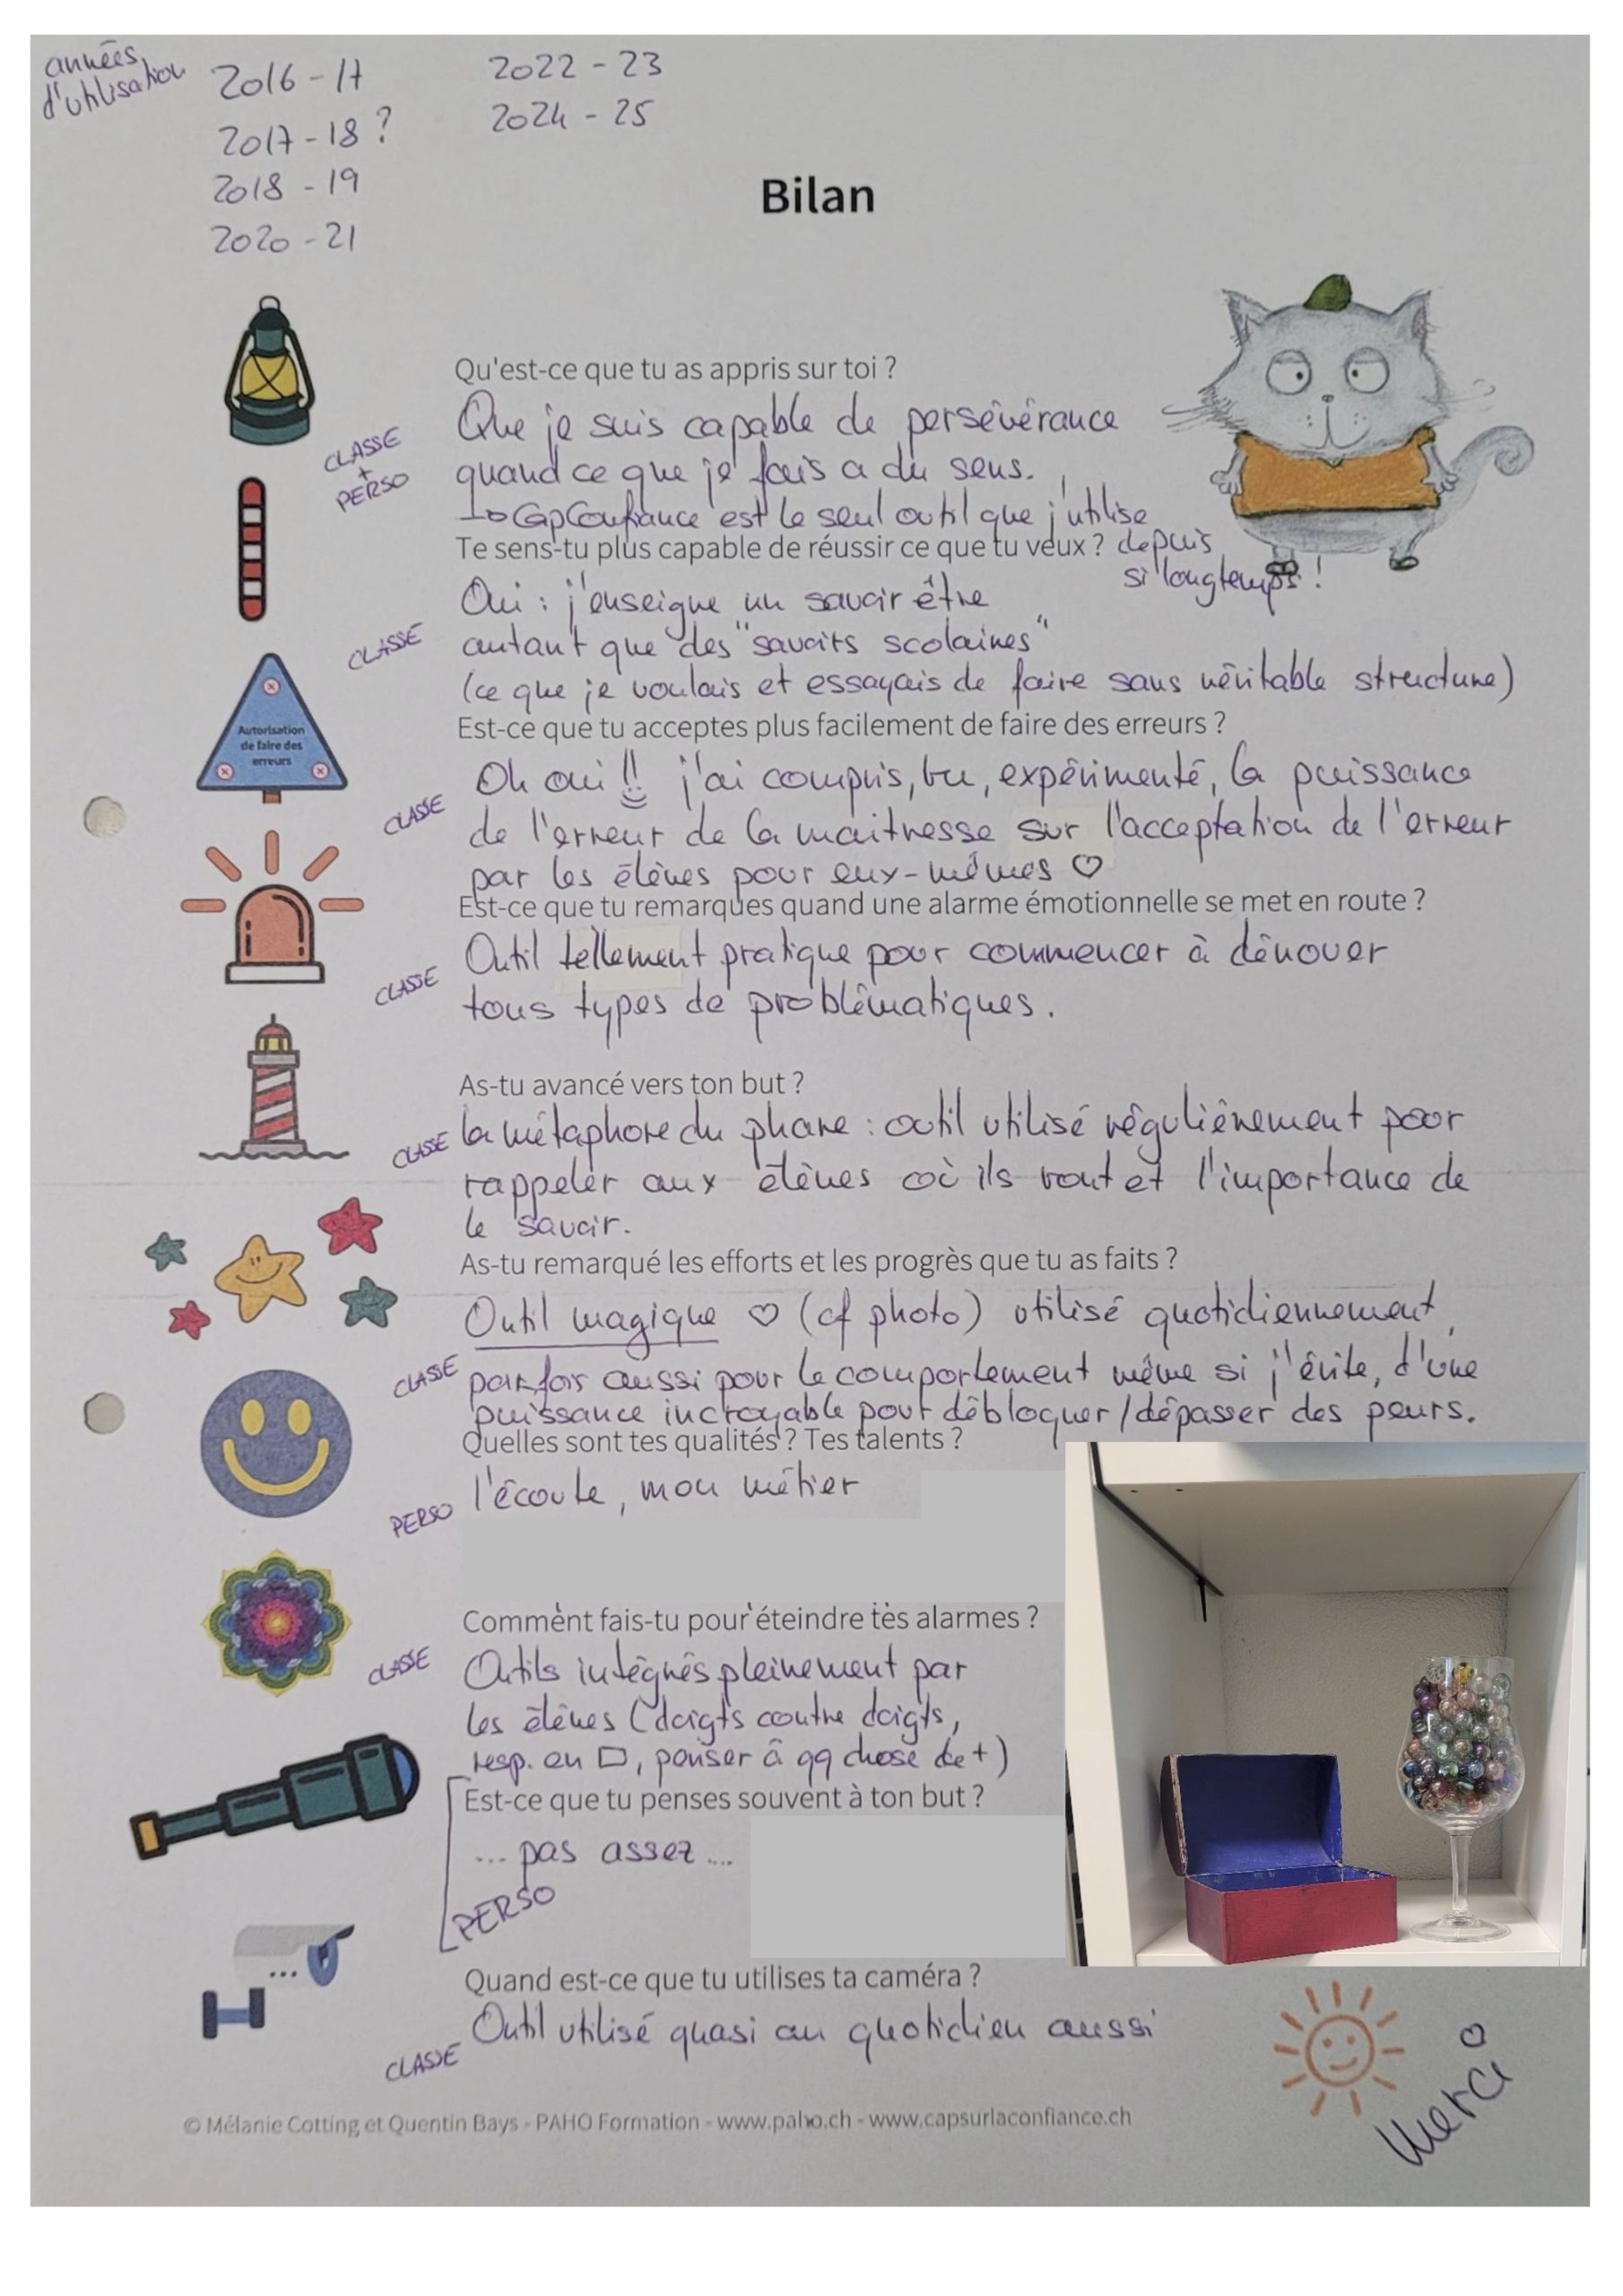 années
d'utilisation
2016 - 17
2017 - 18 ?
2018 - 19
2020 - 21
2022 - 23
2024 - 25
Bilan
Qu'est-ce que tu as appris sur toi ?
CLASSE
+
PERSO
Que je suis capable de persévérance
quand ce que je fais a du sens.
↳ CapConfiance est le seul outil que j'utilise
depuis
si longtemps !
Te sens-tu plus capable de réussir ce que tu veux ?
CLASSE
Oui : j'enseigne un savoir être
autant que des "savoirs scolaires"
(ce que je voulais et essayais de faire sans véritable structure)
Autorisation
de faire des
erreurs
Est-ce que tu acceptes plus facilement de faire des erreurs ?
CLASSE
Oh oui !! j'ai compris, vu, expérimenté, la puissance
de l'erreur de la maitresse sur l'acceptation de l'erreur
par les élèves pour eux-mêmes ♡
Est-ce que tu remarques quand une alarme émotionnelle se met en route ?
CLASSE
Outil tellement pratique pour commencer à dénouer
tous types de problématiques.
As-tu avancé vers ton but ?
CLASSE
la métaphore du phare : outil utilisé régulièrement pour
rappeler aux élèves où ils vont et l'importance de
le savoir.
As-tu remarqué les efforts et les progrès que tu as faits ?
CLASSE
Outil magique ♡ (cf photo) utilisé quotidiennement,
parfois aussi pour le comportement même si j'évite, d'une
puissance incroyable pour débloquer/dépasser des peurs.
Quelles sont tes qualités ? Tes talents ?
PERSO
l'écoute, mon métier
Comment fais-tu pour éteindre tes alarmes ?
CLASSE
Outils intégrés pleinement par
les élèves (doigts contre doigts,
resp. en □, penser à qq chose de +)
Est-ce que tu penses souvent à ton but ?
... pas assez ...
PERSO
Quand est-ce que tu utilises ta caméra ?
CLASSE
Outil utilisé quasi au quotidien aussi
Merci ♡
© Mélanie Cotting et Quentin Bays - PAHO Formation - www.paho.ch - www.capsurlaconfiance.ch